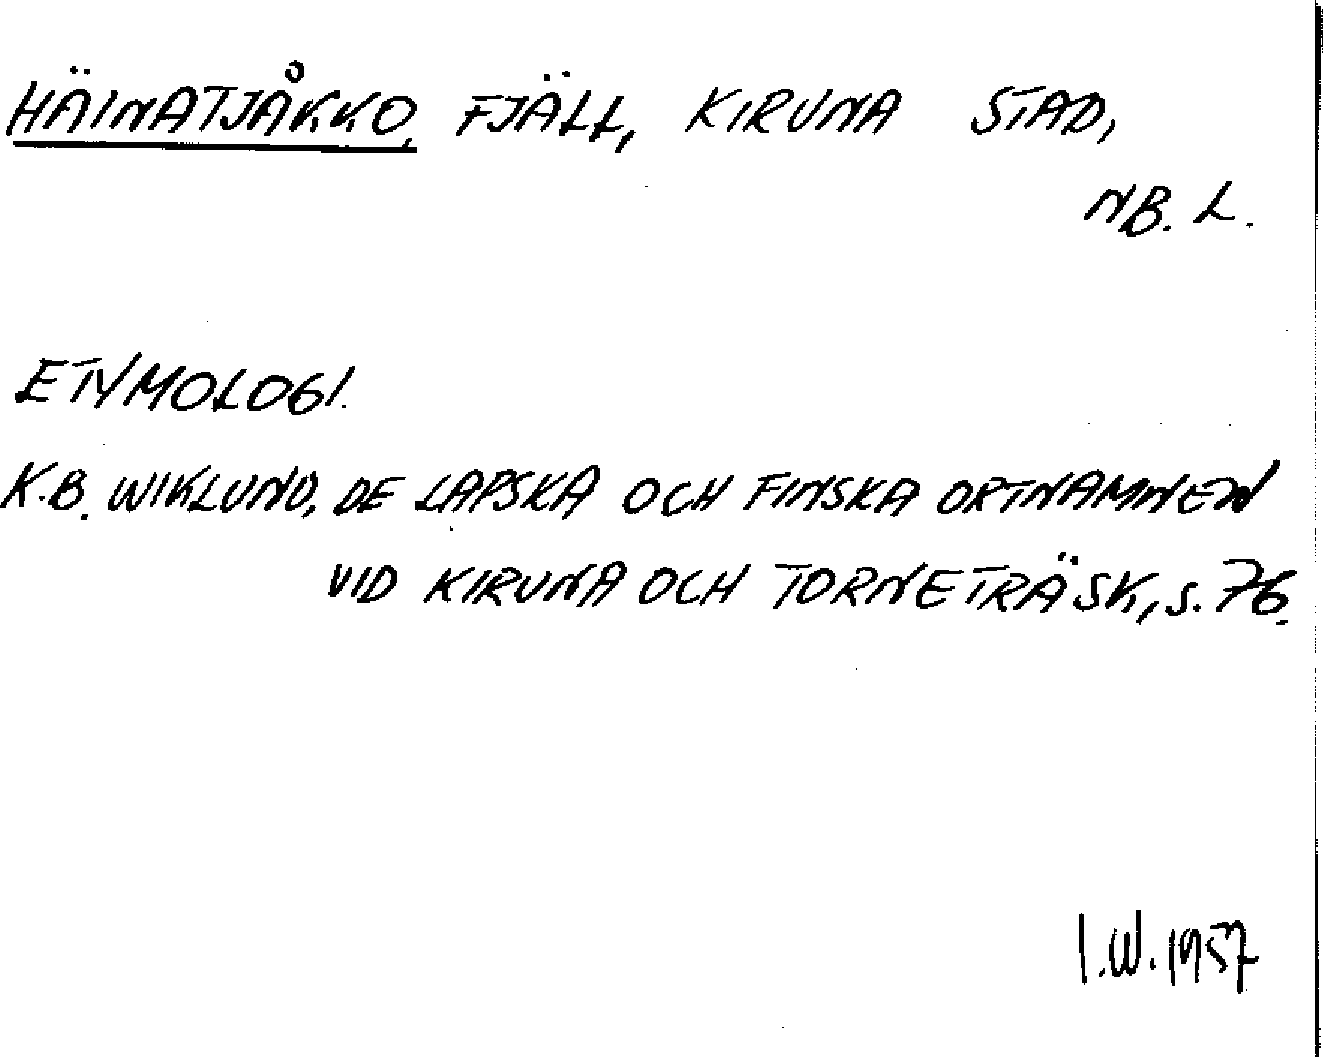 HÄINATJÅKKO, FJÄLL, KIRUNA STAD,
NB. L.
ETYMOLOGI.
K.B. WIKLUND, DE LAPSKA OCH FINSKA ORTNAMNEN
VID KIRUNA OCH TORNETRÄSK, S. 76.
I.W. 1957